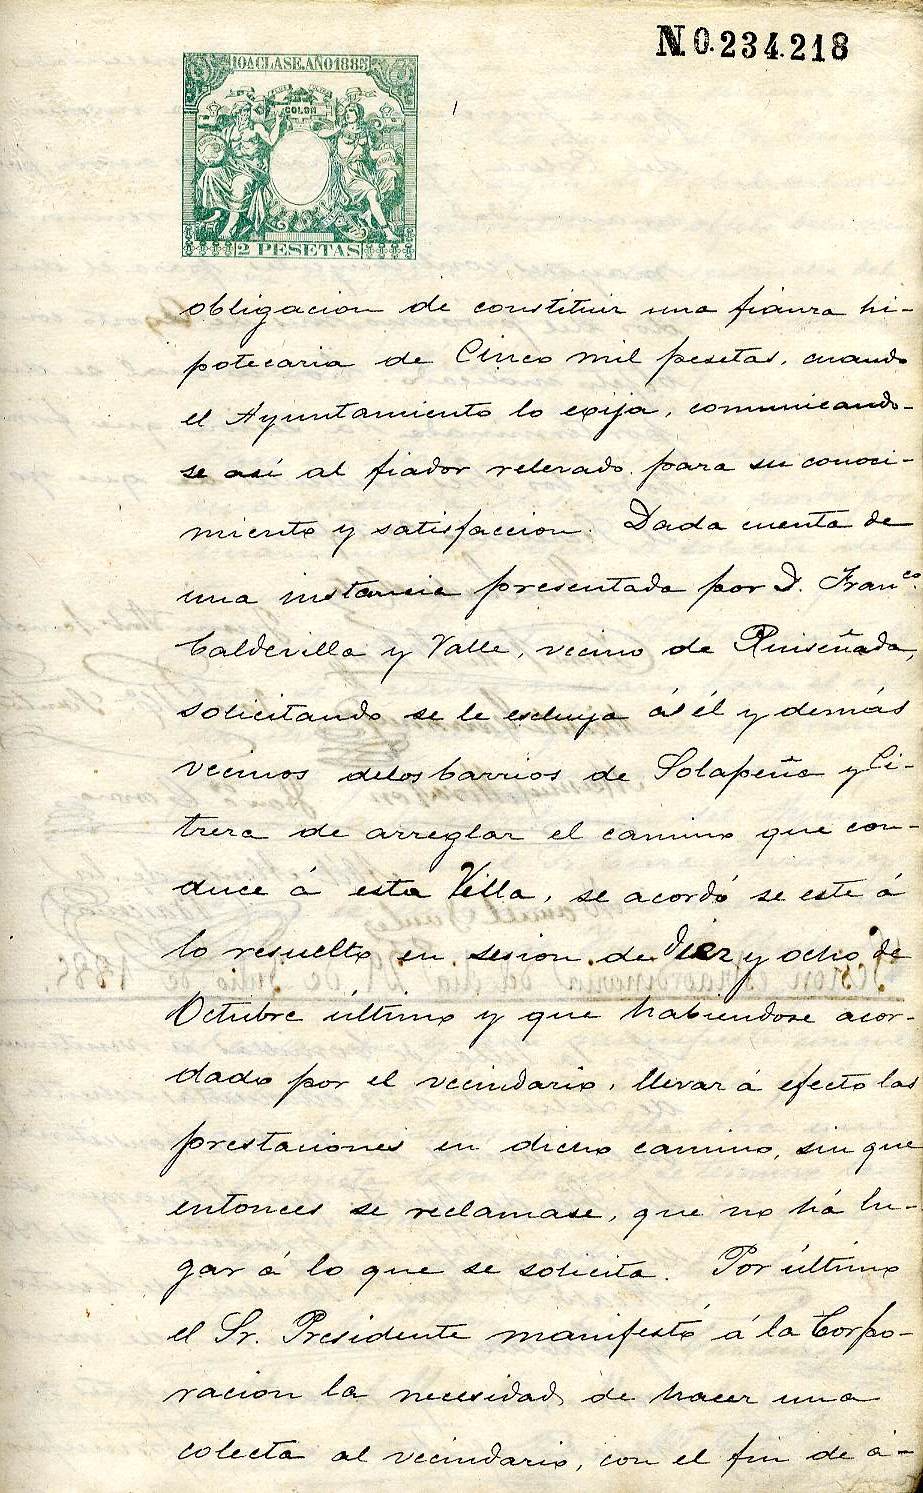 N. 0.234.218
10A CLASE. AÑO 1885
COLON
2 PESETAS
obligacion de constituir una fianza hi-
potecaria de Cinco mil pesetas, cuando
el Ayuntamiento lo exija, comunicando-
se así al fiador relevado para su conoci-
miento y satisfaccion. Dada cuenta de
una instancia presentada por D. Fran.co
Caldevilla y Valle, vecino de Ruiseñada,
solicitando se le escluya á él y demás
vecinos delos barrios de Solapeña y Ci-
trera de arreglar el camino que con-
duce á esta Villa, se acordó se este á
lo resuelto en sesion de diez y ocho de
Octubre último y que habiendose acor-
dado por el vecindario, llevar á efecto las
prestaciones en dicho camino, sin que
entonces se reclamase, que no há lu-
gar á lo que se solicita. Por último
el Sr. Presidente manifestó á la Corpo-
racion la necesidad de hacer una
colecta al vecindario, con el fin de a-